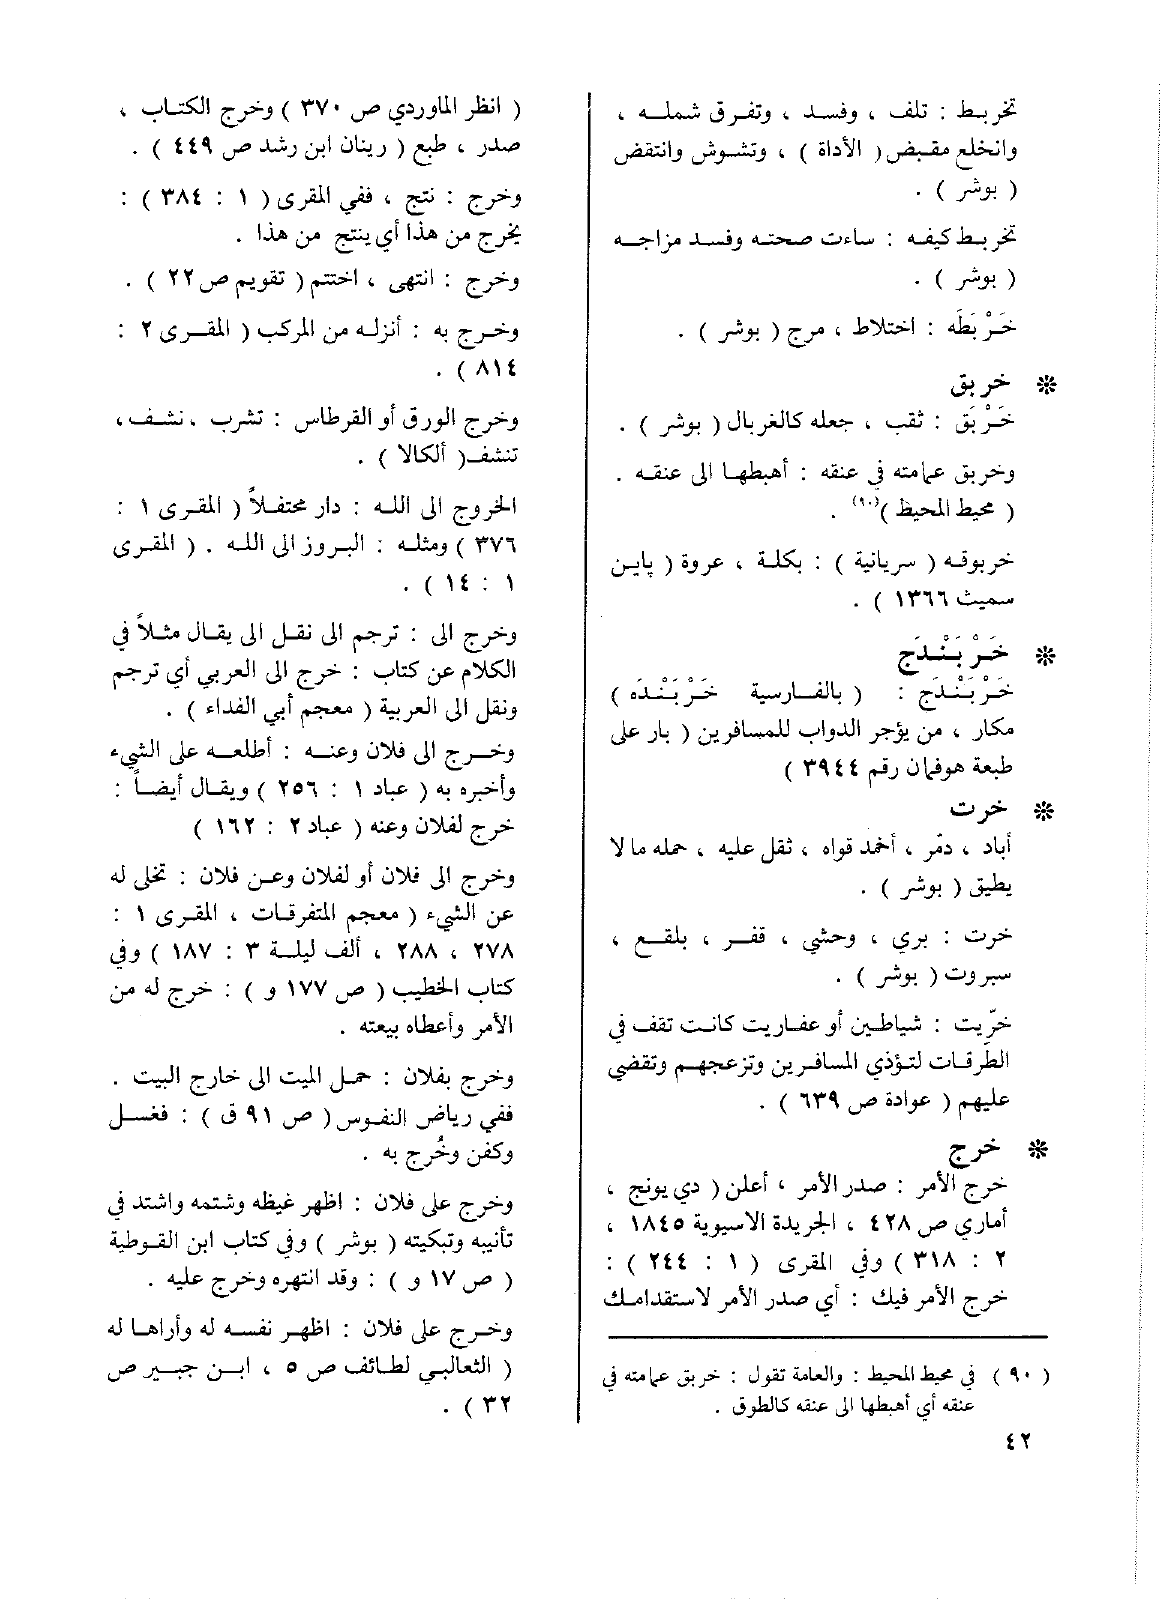 تخربط : تلف ، وفسد ، وتفرق شمله ،
وانخلع مقبض ( الأداة ) ، وتشوش وانتقض
( بوشر ) .
تخربط كيفه : ساءت صحته وفسد مزاجه
( بوشر ) .
خَرْبَطَه : اختلاط ، مرج ( بوشر ) .
❋ خربق
خَرْبَق : ثقب ، جعله كالغربال ( بوشر ) .
وخربق عمامته في عنقه : أهبطها الى عنقه .
( محيط المحيط )(٩٠) .
خربوقه ( سريانية ) : بكلة ، عروة ( پاين
سميث ١٣٦٦ ) .
❋ خَرْبَنْدَج
خَرْبَنْدَج : ( بالفارسية خَرْبَنْدَه )
مكار ، من يؤجر الدواب للمسافرين ( بار علي
طبعة هوفمان رقم ٣٩٤٤ )
❋ خرت
أباد ، دمّر ، أخمد قواه ، ثقل عليه ، حمله ما لا
يطيق ( بوشر ) .
خرت : بري ، وحشي ، قفر ، بلقع ،
سبروت ( بوشر ) .
خرّيت : شياطين أو عفاريت كانت تقف في
الطرقات لتؤذي المسافرين وتزعجهم وتقضي
عليهم ( عوادة ص ٦٣٩ ) .
❋ خرج
خرج الأمر : صدر الأمر ، أعلن ( دي يونج ،
أماري ص ٤٢٨ ، الجريدة الاسيوية ١٨٤٥ ،
٢ : ٣١٨ ) وفي المقرى ( ١ : ٢٤٤ ) :
خرج الأمر فيك : أي صدر الأمر لاستقدامك
( ٩٠ ) في محيط المحيط : والعامة تقول : خربق عمامته في
عنقه أي أهبطها الى عنقه كالطوق .
٤٢
( انظر الماوردي ص ٣٧٠ ) وخرج الكتاب ،
صدر ، طبع ( رينان ابن رشد ص ٤٤٩ ) .
وخرج : نتج ، ففي المقرى ( ١ : ٣٨٤ ) :
يخرج من هذا أي ينتج من هذا .
وخرج : انتهى ، اختتم ( تقويم ص ٢٢ ) .
وخرج به : أنزله من المركب ( المقرى ٢ :
٨١٤ ) .
وخرج الورق أو القرطاس : تشرب ، نشف ،
تنشف ( ألكالا ) .
الخروج الى الله : دار محتفلاً ( المقرى ١ :
٣٧٦ ) ومثله : البروز الى الله . ( المقرى
١ : ١٤ ) .
وخرج الى : ترجم الى نقل الى يقال مثلاً في
الكلام عن كتاب : خرج الى العربي أي ترجم
ونقل الى العربية ( معجم أبي الفداء ) .
وخرج الى فلان وعنه : أطلعه على الشيء
وأخبره به ( عباد ١ : ٢٥٦ ) ويقال أيضاً :
خرج لفلان وعنه ( عباد ٢ : ١٦٢ )
وخرج الى فلان أو لفلان وعن فلان : تخلى له
عن الشيء ( معجم المتفرقات ، المقرى ١ :
٢٧٨ ، ٢٨٨ ، ألف ليلة ٣ : ١٨٧ ) وفي
كتاب الخطيب ( ص ١٧٧ و ) : خرج له من
الأمر وأعطاه بيعته .
وخرج بفلان : حمل الميت الى خارج البيت .
ففي رياض النفوس ( ص ٩١ ق ) : فغسل
وكفن وخُرج به .
وخرج على فلان : اظهر غيظه وشتمه واشتد في
تأنيبه وتبكيته ( بوشر ) وفي كتاب ابن القوطية
( ص ١٧ و ) : وقد انتهره وخرج عليه .
وخرج على فلان : اظهر نفسه له وأراها له
( الثعالبي لطائف ص ٥ ، ابن جبير ص
٣٢ ) .